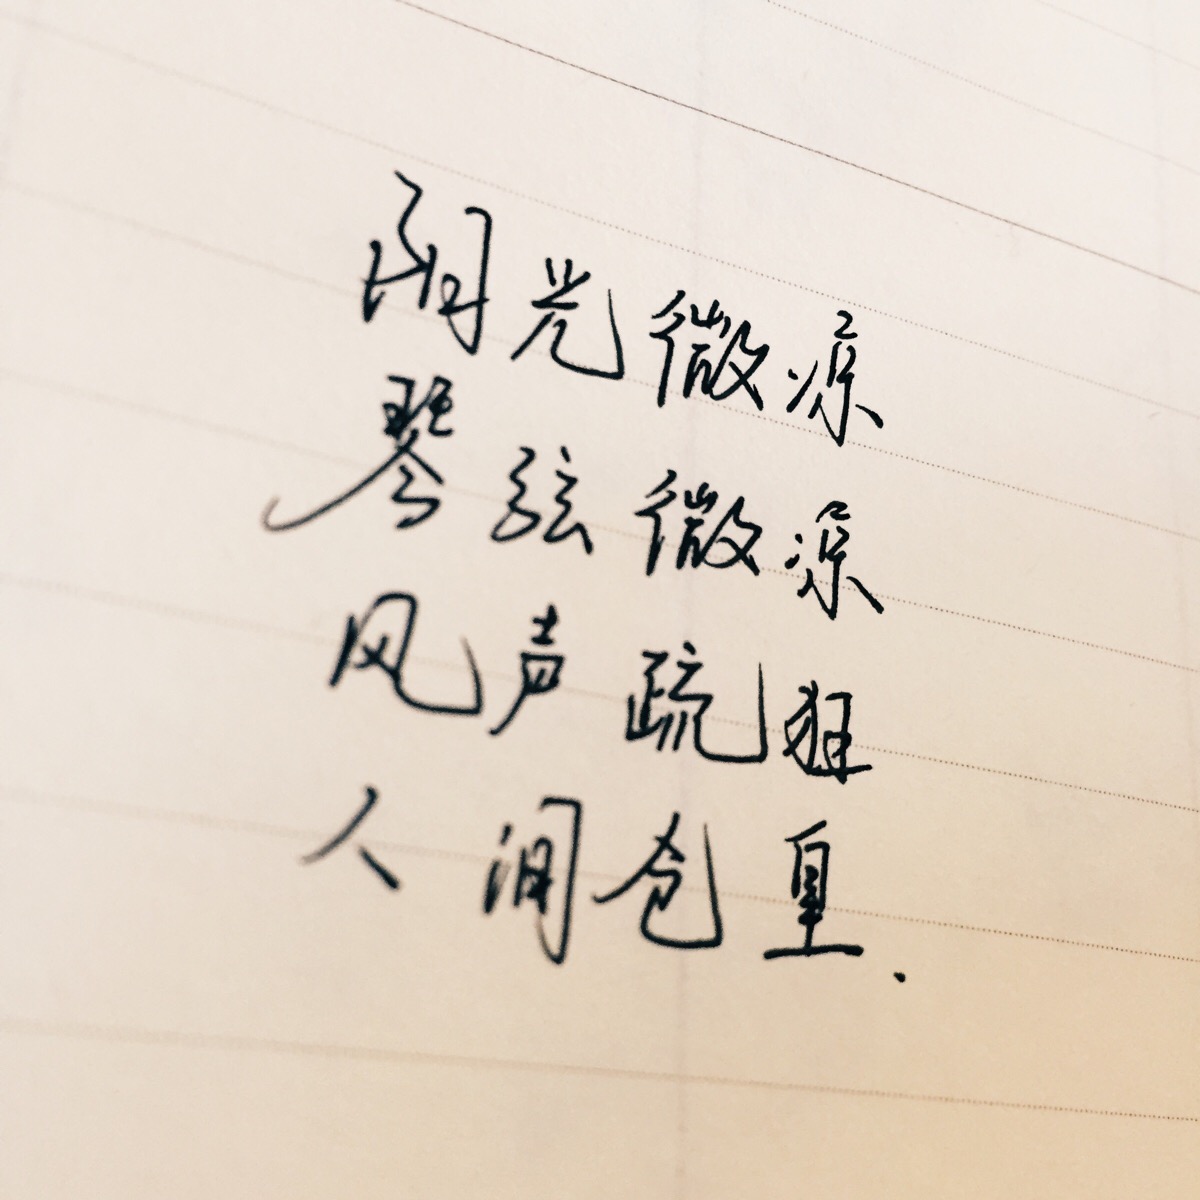 阳光微凉
琴弦微凉
风声疏狂
人间仓皇.